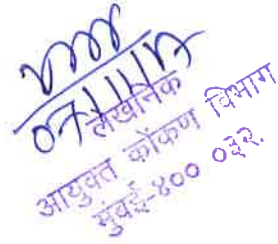 07/11/17
लेखनिक
आयुक्त कोंकण विभाग
मुंबई-४०० ०३२.